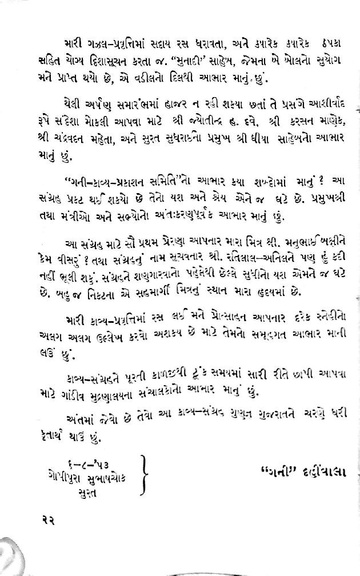 મારી ગઝલ-પ્રવૃત્તિમાં સદાય રસ ધરાવતા, અને ક્યારેક ક્યારેક ઠપકા
સહિત યોગ્ય દિશાસૂચન કરતા જ. “મુનાદી” સાહેબ, જેમના બે બોલનો સુયોગ
મને પ્રાપ્ત થયો છે, એ વડીલનો દિલથી આભાર માનું છું.
થેલી અર્પણ સમારંભમાં હાજર ન રહી શક્યા છતાં તે પ્રસંગે આશીર્વાદ
રૂપે સંદેશા મોકલી આપવા માટે શ્રી જ્યોતીન્દ્ર હ. દવે, શ્રી કરસન માણેક,
શ્રી ચંદ્રવદન મહેતા, અને સુરત સુધરાઈના પ્રમુખ શ્રી ઘીયા સાહેબનો આભાર
માનું છું.
“ગની-કાવ્ય-પ્રકાશન સમિતિ”નો આભાર કયા શબ્દોમાં માનું ? આ
સંગ્રહ પ્રકટ થઈ શકયો છે તેનો યશ અને શ્રેય એને જ ઘટે છે. પ્રમુખશ્રી
તથા મંત્રીઓ અને સભ્યોનો અંતઃકરણપૂર્વક આભાર માનું છું.
આ સંગ્રહ માટે સૌ પ્રથમ પ્રેરણા આપનાર મારા મિત્ર શ્રી. મનુભાઈ બક્ષીને
કેમ વીસરું ? તથા સંગ્રહનું નામ સૂચવનાર શ્રી. રતિલાલ-અનિલને પણ હું કદી
નહીં ભૂલી શકું. સંગ્રહને શણગારવાનો પહેલેથી છેલ્લે સુધીનો યશ એમને જ ઘટે
છે. બહુ જ નિકટના એ સહમાર્ગી મિત્રનું સ્થાન મારા હૃદયમાં છે.
મારી કાવ્ય-પ્રવૃત્તિમાં રસ લઈ મને પ્રોત્સાહન આપનાર દરેક સ્નેહીનો
અલગ અલગ ઉલ્લેખ કરવો અશક્ય છે માટે તેમનો સમૂહગત આભાર માની
લઉં છું.
કાવ્ય-સંગ્રહને પૂરતી કાળજીથી ટૂંક સમયમાં સારી રીતે છાપી આપવા
માટે ગાંડીવ મુદ્રણાલયના સંચાલકોનો આભાર માનું છું.
અંતમાં જેવો છે તેવો આ કાવ્ય-સંગ્રહ ગુણજ્ઞ ગુજરાતને ચરણે ધરી
કૃતાર્થ થાઉં છું.
૬-૮-’૫૩
ગોપીપુરા સુભાષચોક
સુરત
“ગની” દહીંવાલા
૨૨